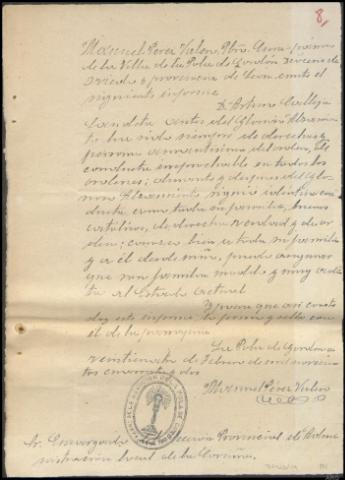 8,
Manuel Pérez Valero, Pbro. Cura párroco
de la Villa de La Pola de Gordón Diócesis de
Oviedo y provincia de León, emite el
siguiente informe
D. Arturo Calleja
antes del Glorioso Alzamien
to ha sido siempre de derechas y
persona amantísima del orden, de
conducta irreprochable en todos los
órdenes; durante y después del Glo-
rioso Alzamiento siguió idéntica con
ducta como toda su familia, buenos
católicos, de derechas verdad y de or
den; conozco bien a toda su familia
y a él desde niño, puedo asegurar
que son familia modelo y muy adic
ta al Estado actual
Y para que así conste
doy este informe lo firmo y sello con
el de la parroquia
La Pola de Gordón a
de Febrero de mil novecien
tos cuarenta y dos
Manuel Pérez Valero
Sr. Encargado Provincial de Admi
nistración local de La Coruña.